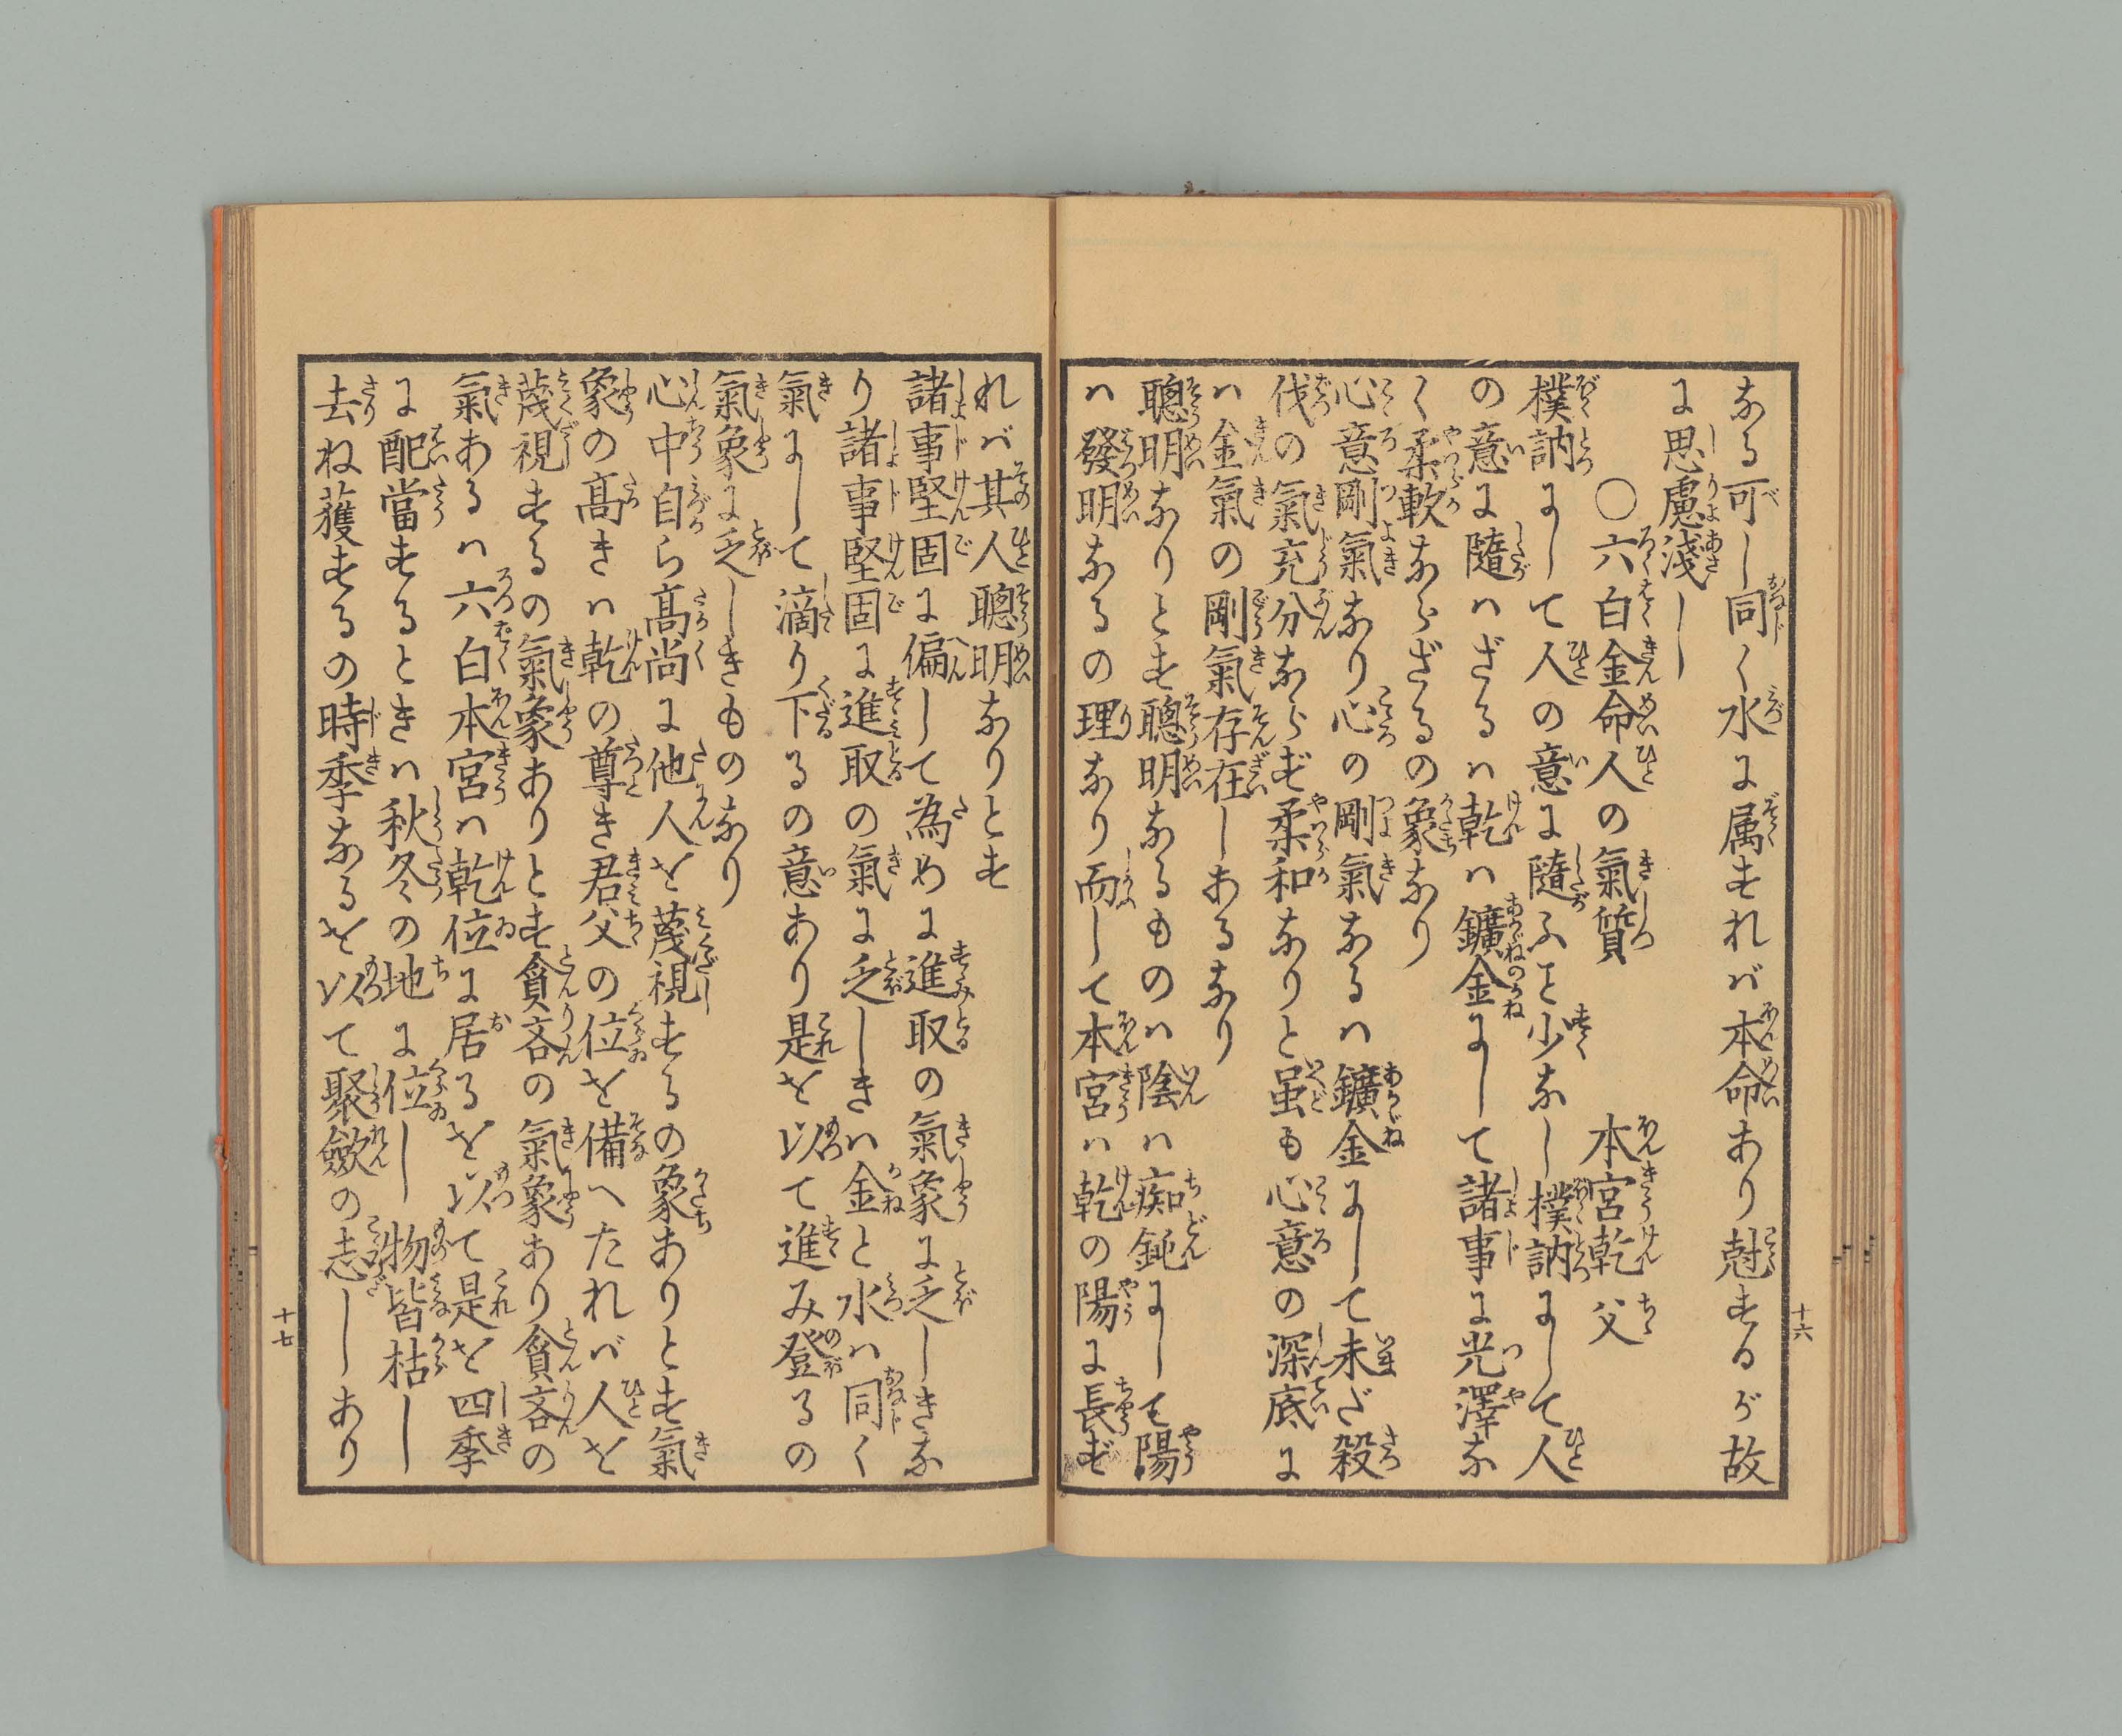 なる可し同く水に属すれバ本命あり尅するが故
に思慮淺し
〇六白金命人の氣質 本宮乾 父
樸訥にして人の意に隨ふこと少なし樸訥にして人
の意に隨ハざるハ乾ハ鑛金にして諸事に光澤な
く柔軟ならざるの象なり
心意剛氣なり心の剛氣なるハ鑛金にして未だ殺
伐の氣充分ならず柔和なりと虽も心意の深底に
ハ金氣の剛氣存在しあるなり
聰明なりとす聰明なるものハ陰ハ痴鈍にして陽
ハ發明なるの理なり而して本宮ハ乾の陽に長ず
十六
れバ其人聰明なりとす
諸事堅固に偏して為めに進取の氣象に乏しきな
り諸事堅固に進取の氣に乏しきハ金と水ハ同く
氣にして滴り下るの意あり是を以て進み登るの
氣象に乏しきものなり
心中自ら髙尚に他人を蔑視するの象ありとす氣
象の髙きハ乾の尊き君父の位を備へたれバ人を
蔑視するの氣象ありとす貪吝の氣象あり貪吝の
氣あるハ六白本宮ハ乾位に居るを以て是を四季
に配當するときハ秋冬の地に位し物皆枯し
去ね蓷するの時季なるを以て聚斂の志しあり
十七